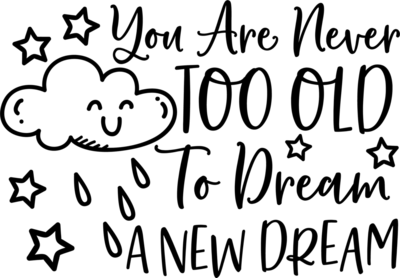 You Are Never
TOO OLD
To Dream
A NEW DREAM